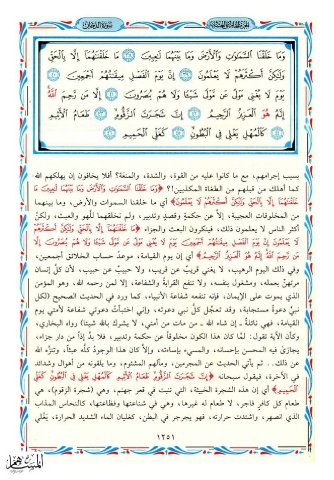 سورة الدخان
وَمَا خَلَقْنَا السَّمَاوَاتِ وَالْأَرْضَ وَمَا بَيْنَهُمَا لَاعِبِينَ ﴿٣٨﴾ مَا خَلَقْنَاهُمَا إِلَّا بِالْحَقِّ
وَلَٰكِنَّ أَكْثَرَهُمْ لَا يَعْلَمُونَ ﴿٣٩﴾ إِنَّ يَوْمَ الْفَصْلِ مِيقَاتُهُمْ أَجْمَعِينَ ﴿٤٠﴾
يَوْمَ لَا يُغْنِي مَوْلًى عَن مَّوْلًى شَيْئًا وَلَا هُمْ يُنصَرُونَ ﴿٤١﴾ إِلَّا مَن رَّحِمَ اللَّهُ
إِنَّهُ هُوَ الْعَزِيزُ الرَّحِيمُ ﴿٤٢﴾ إِنَّ شَجَرَتَ الزَّقُّومِ ﴿٤٣﴾ طَعَامُ الْأَثِيمِ
﴿٤٤﴾ كَالْمُهْلِ يَغْلِي فِي الْبُطُونِ ﴿٤٥﴾ كَغَلْيِ الْحَمِيمِ ﴿٤٦﴾
بسبب إجرامهم، مع ما كانوا عليه من القوة، والشدة، والمنعة؟ أفلا يخافون إن يهلكهم الله
كما أهلك من قبلهم من الطغاة المكذبين؟! ﴿وَمَا خَلَقْنَا السَّمَاوَاتِ وَالْأَرْضَ وَمَا بَيْنَهُمَا لَاعِبِينَ مَا
خَلَقْنَاهُمَا إِلَّا بِالْحَقِّ وَلَٰكِنَّ أَكْثَرَهُمْ لَا يَعْلَمُونَ﴾ أي ما خلقنا السموات والأرض، وما بينهما
من المخلوقات العجيبة، إلا عن حكمةٍ وقصدٍ وتدبير، ولم نخلقهما للهو والعبث، ولكنَّ
أكثر الناس لا يعلمون ذلك، فينكرون البعث والجزاء ﴿مَا خَلَقْنَاهُمَا إِلَّا بِالْحَقِّ وَلَٰكِنَّ أَكْثَرَهُمْ
لَا يَعْلَمُونَ إِنَّ يَوْمَ الْفَصْلِ مِيقَاتُهُمْ أَجْمَعِينَ يَوْمَ لَا يُغْنِي مَوْلًى عَن مَّوْلًى شَيْئًا وَلَا هُمْ يُنصَرُونَ إِلَّا
مَن رَّحِمَ اللَّهُ إِنَّهُ هُوَ الْعَزِيزُ الرَّحِيمُ﴾ أي إن يوم القيامة، موعدُ حساب الخلائق أجمعين،
وفي ذلك اليوم الرهيب، لا يغني قريبٌ عن قريب، ولا حبيبٌ عن حبيب، لأن كلَّ إنسان
مرتهنٌ بعمله، ومشغول بنفسه، ولا تنفع القرابةُ والشفاعة، إلا لمن رحمه الله، وهو المؤمن
الذي يموت على الإيمان، فإنه تنفعه شفاعة الأنبياء، كما ورد في الحديث الصحيح (لكل
نبيٍّ دعوةٌ مستجابة، وقد تعجَّل كلُّ نبي دعوته، وإني اختبأتُ دعوتي شفاعة لأمتي يوم
القيامة، فهي نائلةٌ - إن شاء الله - من مات من أمتي، لا يشرك بالله شيئا) رواه البخاري،
وكأن الآية تقول: لمَّا كان هذا الكون مخلوقاً عن حكمة وتدبير، فلا بدَّ إذاً من دار جزاء،
يجازى فيه المحسن بإحسانه، والمسيء بإساءته، وإلا كان هذا الوجودُ كلُّه عبثاً، وتنزَّه الله
عن ذلك.. ثم يأتي الحديث عن المجرمين، ومآلهم المشئوم، وما يلقونه من أهوال وشدائد
في الآخرة، فيقول سبحانه ﴿إِنَّ شَجَرَتَ الزَّقُّومِ طَعَامُ الْأَثِيمِ كَالْمُهْلِ يَغْلِي فِي الْبُطُونِ كَغَلْيِ
الْحَمِيمِ﴾ أي إن هذه الشجرة الخبيثة، التي تنبت في قعر جهنم، وهي (شجرة الزقوم)، هي
طعام كل كافرٍ فاجر، لا طعام له غيرها، وهي في شناعتها وفظاعتها، كالنحاس المذاب
الذي انصهر، واشتدت حرارته، فهو يجرجر في البطن، كغليان الماء الشديد الحرارة، يَغْلي
١٢٥١